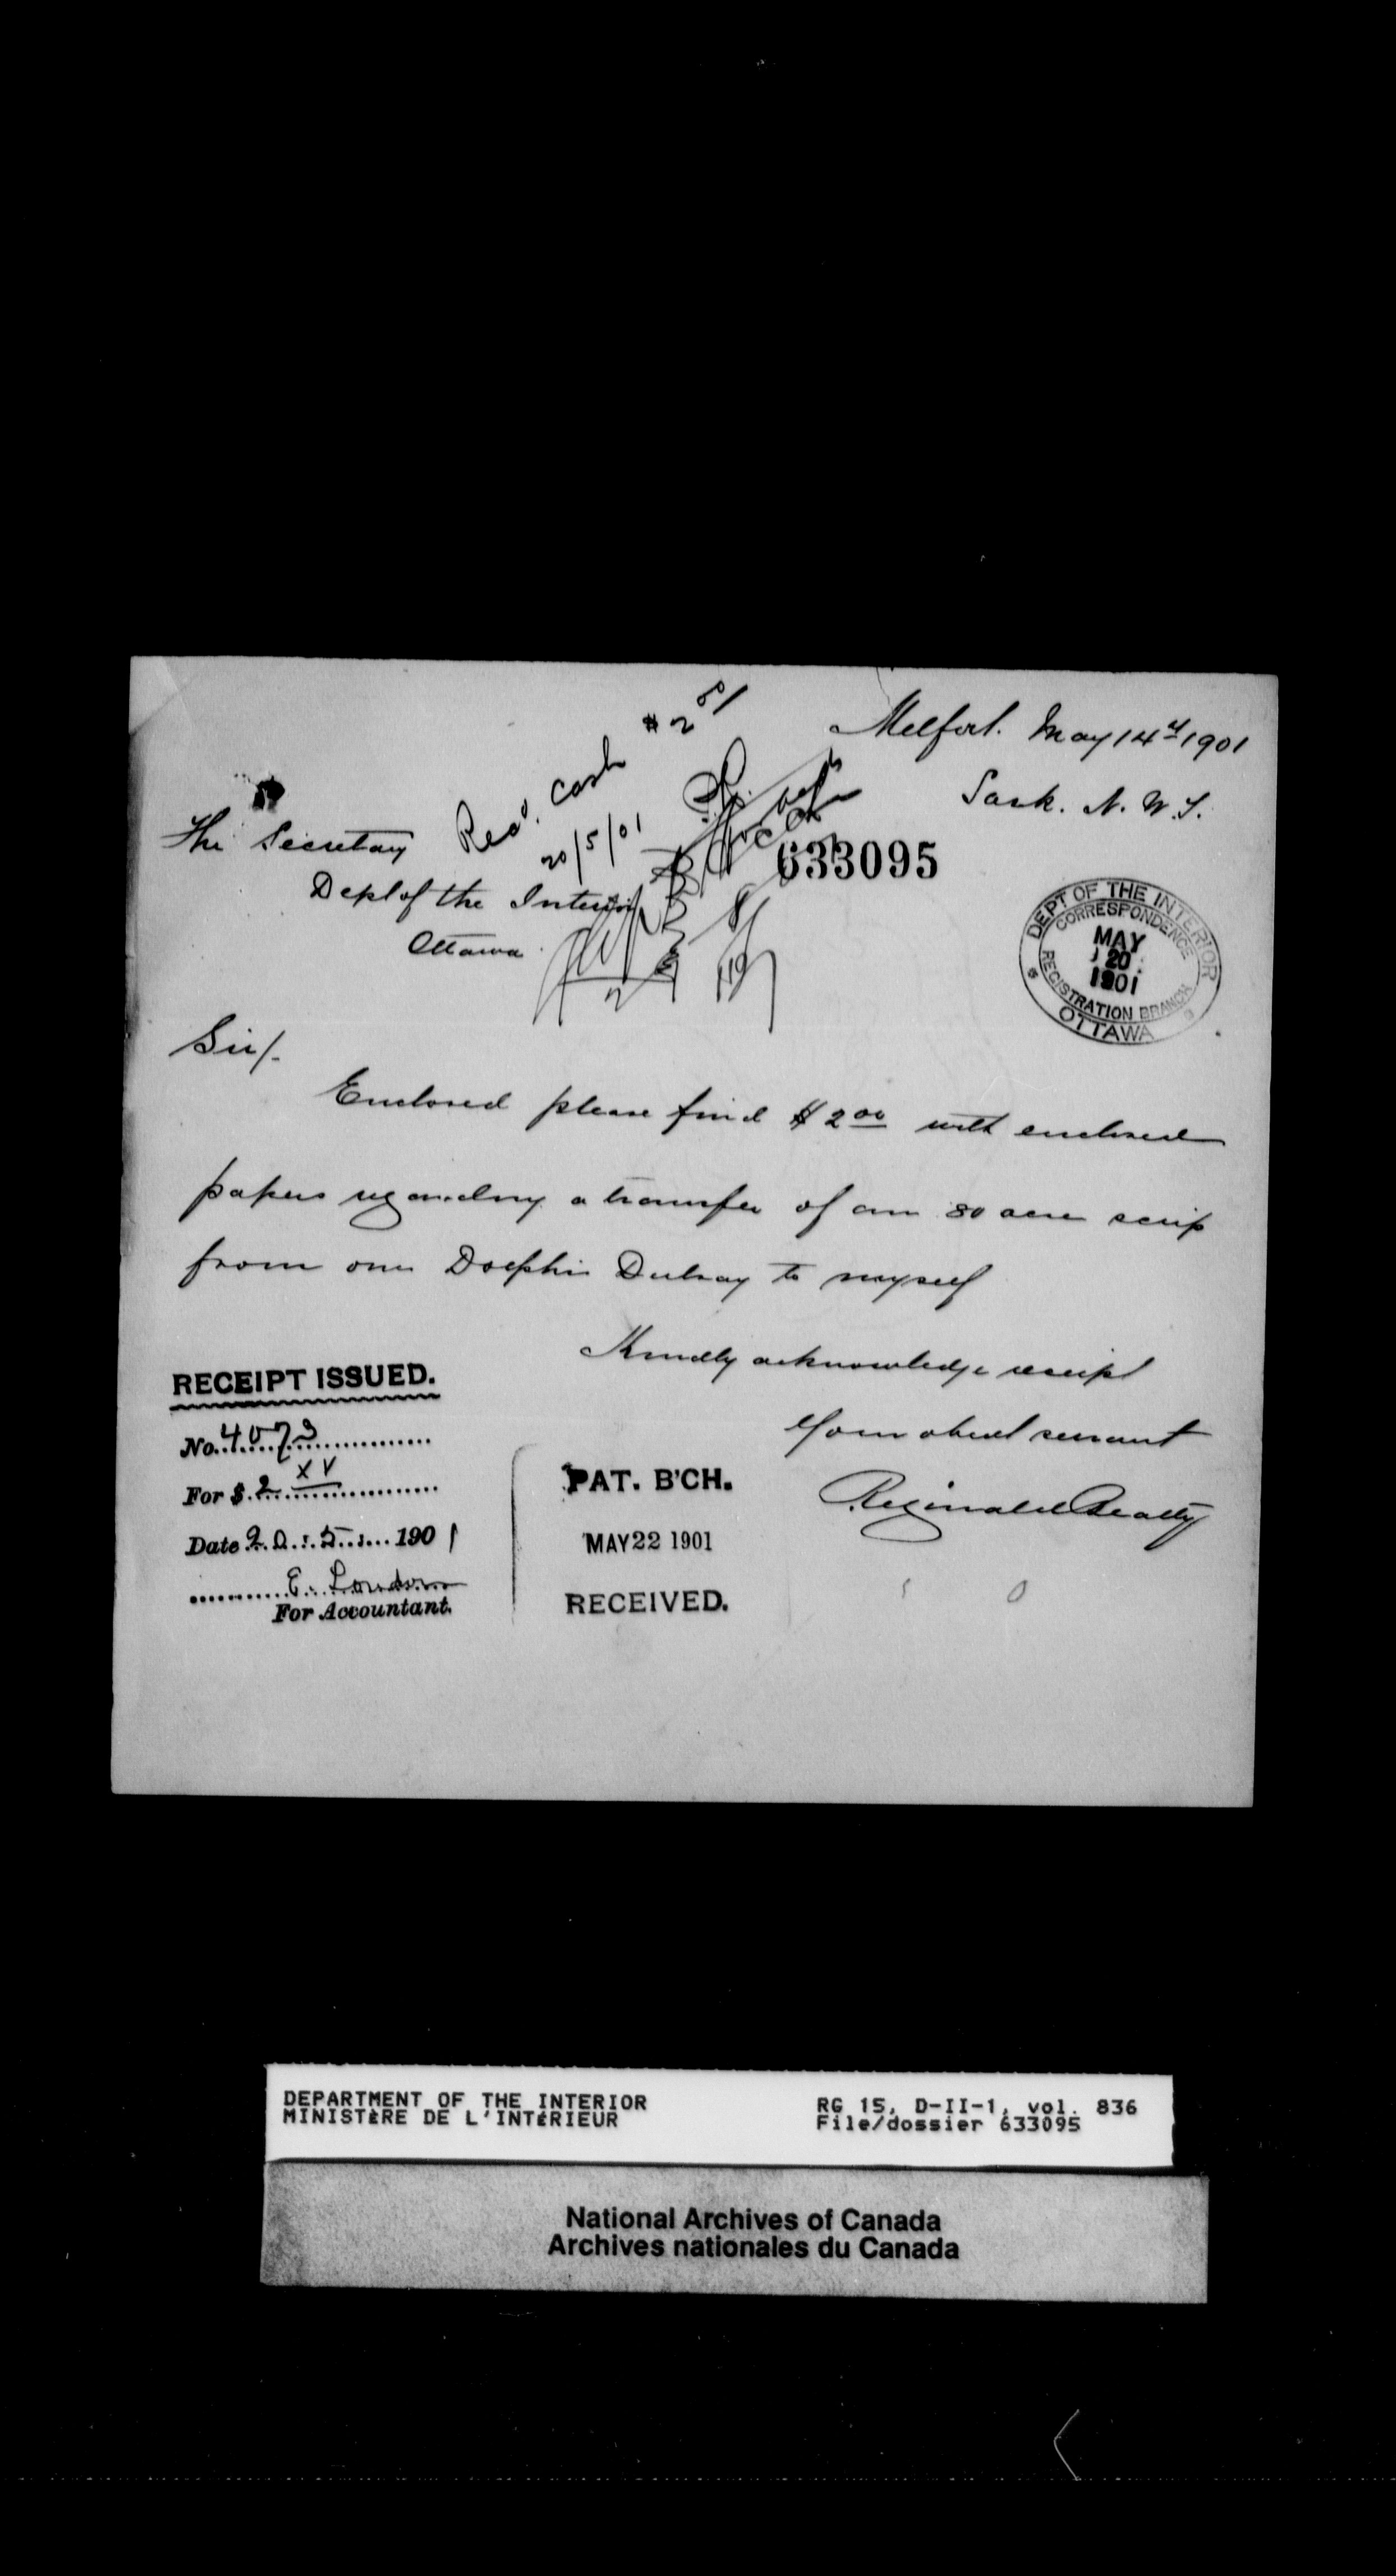 Melfort. May 14th 1901
Sask. N. W. T.
Recd. Cash $2 01
20/5/01
633095
The Secretary
Dept of the Interior
Ottawa
DEPT OF THE INTERIOR
CORRESPONDENCE
MAY
20
1901
REGISTRATION BRANCH
OTTAWA
Sir/.
Enclosed please find $2 00 with enclosed
papers regarding a transfer of an 80 acre scrip
from one Dolphis to myself
Kindly acknowledge receipt
Your obedt servant
Reginald Beatty
RECEIPT ISSUED.
No. 4073
For $ 2 xv
Date 20.5. 1901
E.
For Accountant.
PAT. B'CH.
MAY 22 1901
RECEIVED.
DEPARTMENT OF THE INTERIOR RG 15, D-II-1, vol. 836
MINISTÈRE DE L'INTÉRIEUR File/dossier 633095
National Archives of Canada
Archives nationales du Canada